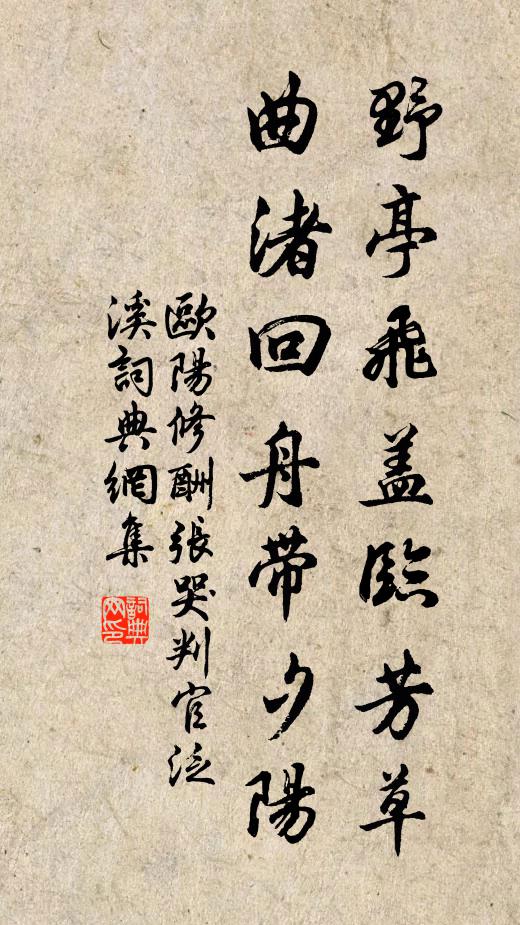 野亭飛蓋臨芳草
曲渚回舟帶夕陽
歐陽修酬張器判官泛
溪詞典網集
詞典
网印